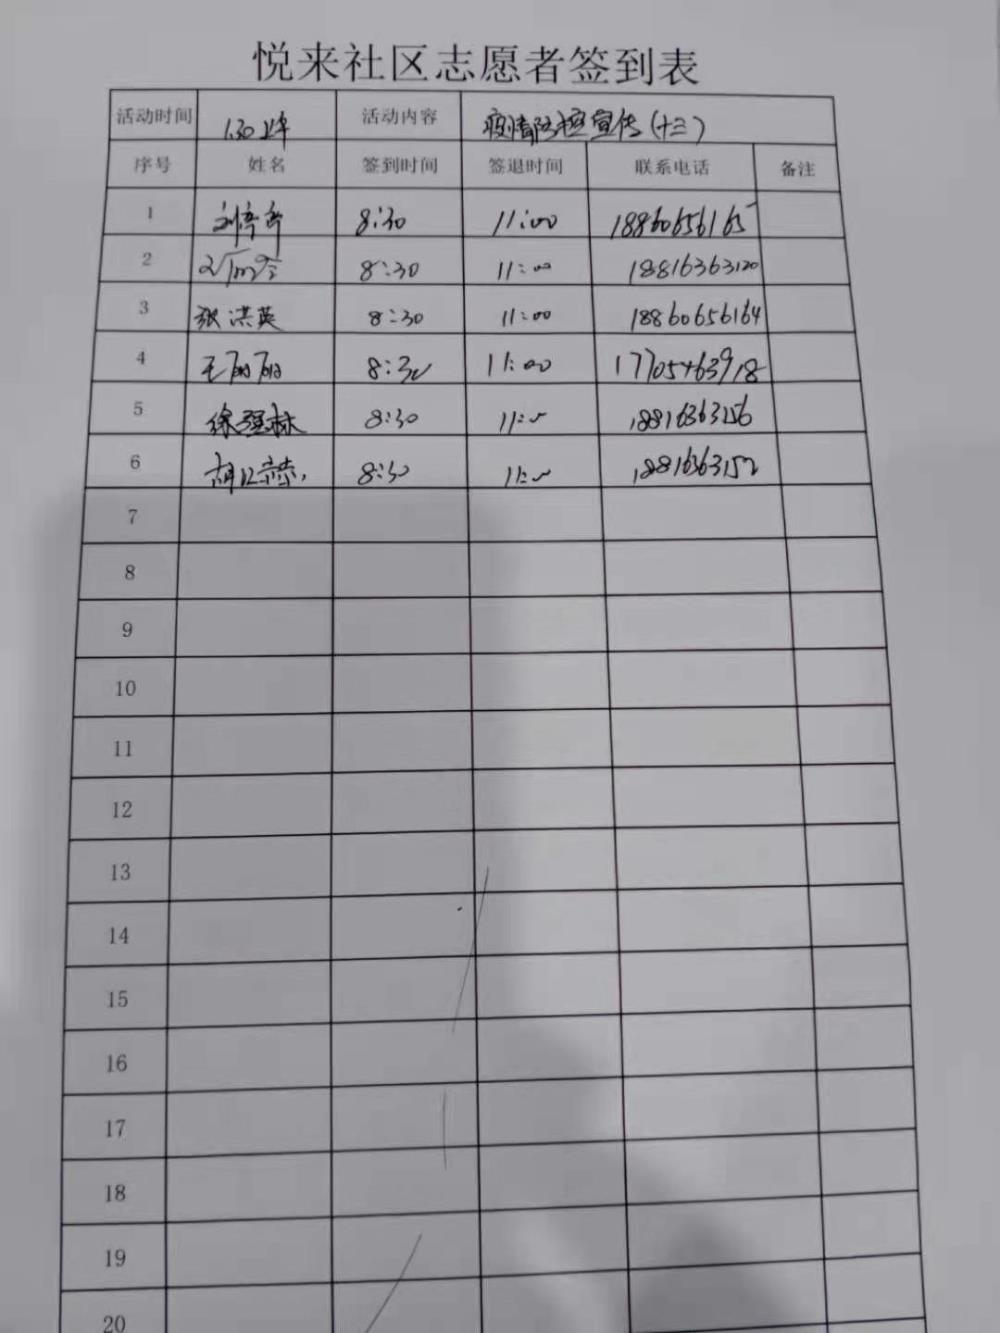 悦来社区志愿者签到表
活动时间 1.30上午 活动内容 疫情防控宣传(十三)
序号 姓名 签到时间 签退时间 联系电话 备注
1 8:30 11:00 18860656165
2 8:30 11:00 18816363120
3 张洪英 8:30 11:00 18860656164
4 王丽丽 8:30 11:00 17705463918
5 徐强林 8:30 11:00 18816363156
6 8:30 11:00 18816363152
7
8
9
10
11
12
13
14
15
16
17
18
19
20